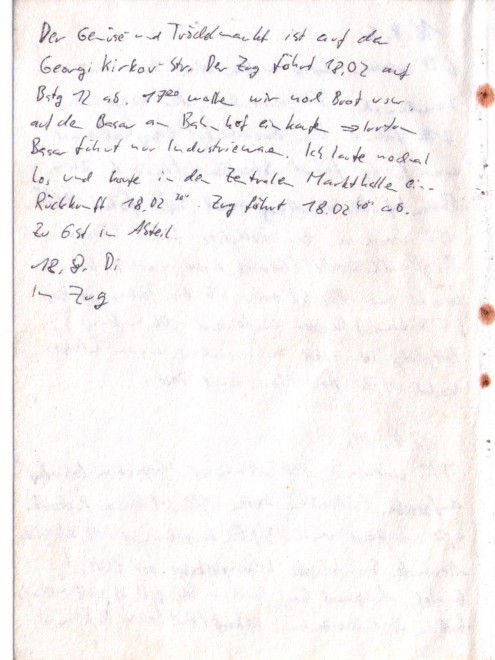 Der Gemüse und Trödelmarkt ist auf der
Georgi Kirkov Str. Der Zug fährt 18.02 auf
Bstg 12 ab. 17²⁰ wollen wir noch Brot usw
auf dem Basar am Bahnhof einkaufen ⇒ Irrtum
Basar führt nur Industriewaren. Ich laufe nochmal
los und kaufe in den Zentralen Markthallen ein.
Rückkunft 18.02 ³⁰. Zug fährt 18.02 ⁴⁰ ab.
Zu 6st im Abteil
18. 8. Di
Im Zug